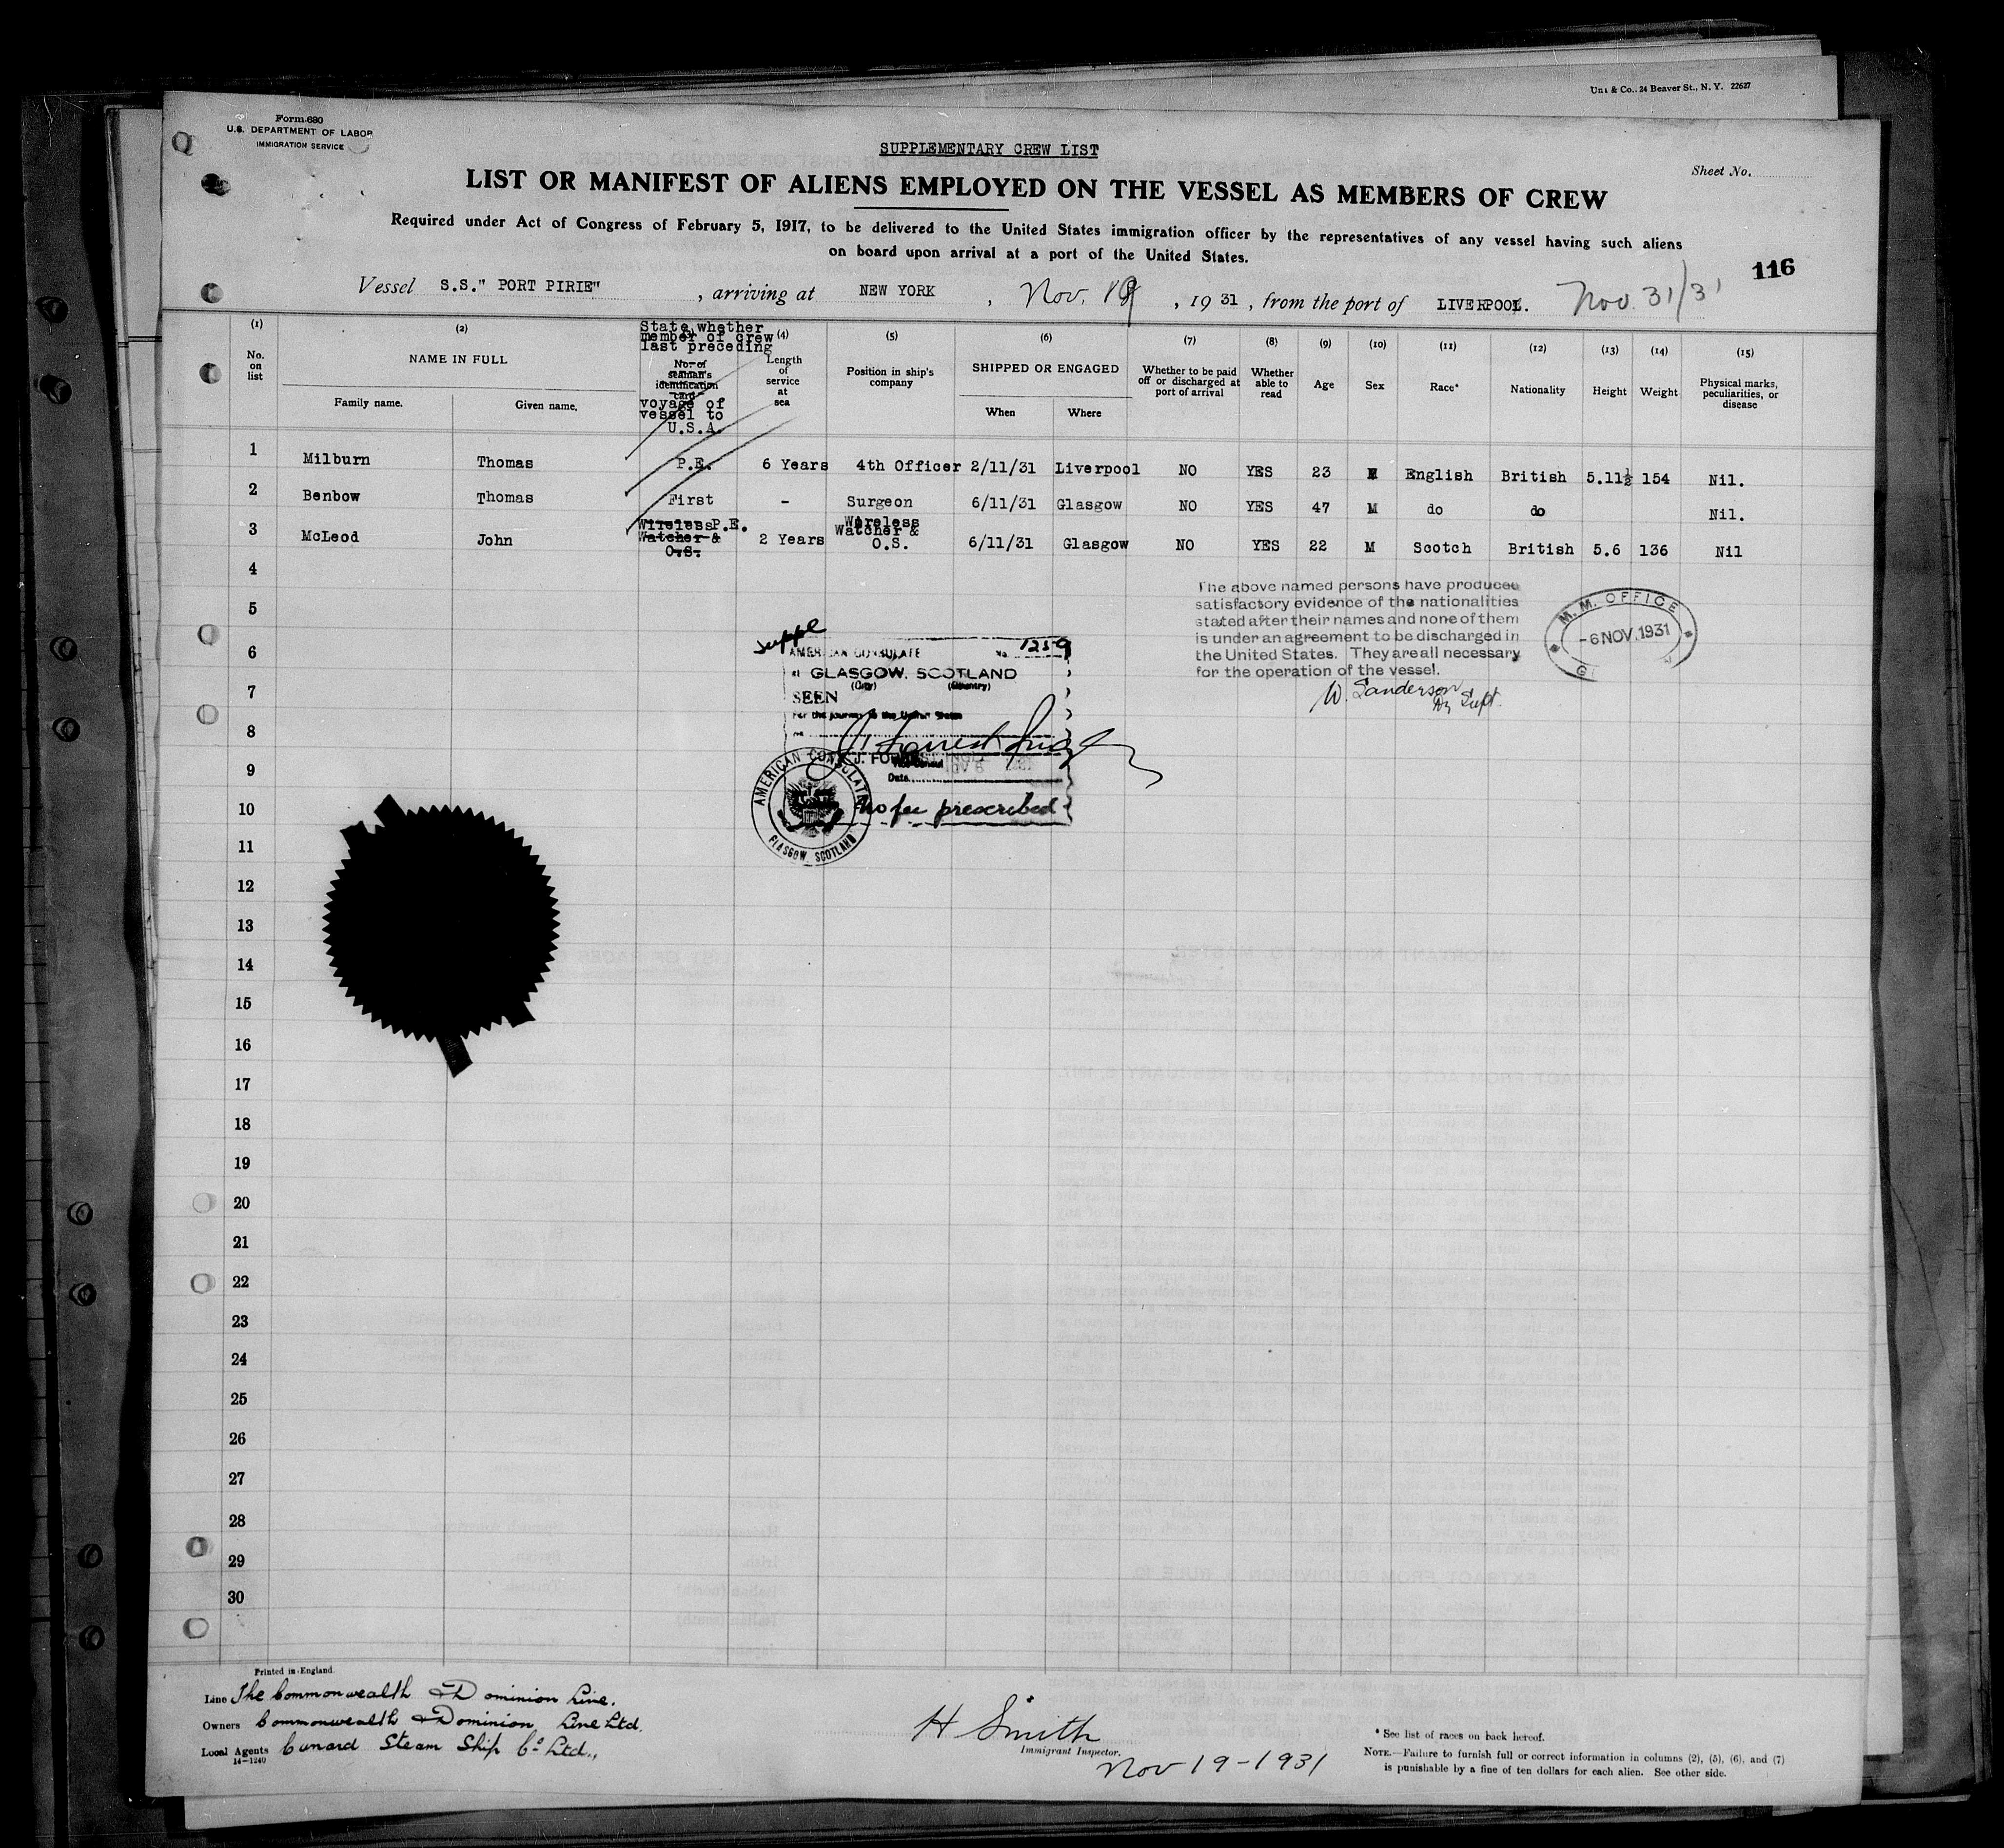 Co., 24 Beaver St., N. Y. 22627
Form 680
U.S. DEPARTMENT OF LABOR
IMMIGRATION SERVICE
SUPPLEMENTARY CREW LIST
Sheet No.
LIST OR MANIFEST OF ALIENS EMPLOYED ON THE VESSEL AS MEMBERS OF CREW
Required under Act of Congress of February 5, 1917, to be delivered to the United States immigration officer by the representatives of any vessel having such aliens
on board upon arrival at a port of the United States.
116
Vessel S.S." PORT PIRIE" , arriving at NEW YORK , Nov. 19 , 1931 , from the port of LIVERPOOL. Nov. 31/31
(1) No. on list
(2) NAME IN FULL
Family name. Given name.
State whether member of crew last preceding
No. of seaman's identification card
voyage of vessel to U.S.A.
(4) Length of service at sea
(5) Position in ship's company
(6) SHIPPED OR ENGAGED
When Where
(7) Whether to be paid off or discharged at port of arrival
(8) Whether able to read
(9) Age
(10) Sex
(11) Race*
(12) Nationality
(13) Height
(14) Weight
(15) Physical marks, peculiarities, or disease
1 Milburn Thomas P.E. 6 Years 4th Officer 2/11/31 Liverpool NO YES 23 M English British 5.11½ 154 Nil.
2 Benbow Thomas First - Surgeon 6/11/31 Glasgow NO YES 47 M do do Nil.
3 McLeod John Wireless P.E. Watcher & O.S. 2 Years Wireless Watcher & O.S. 6/11/31 Glasgow NO YES 22 M Scotch British 5.6 136 Nil
4
5
6
7
8
9
10
11
12
13
14
15
16
17
18
19
20
21
22
23
24
25
26
27
28
29
30
The above named persons have produced
satisfactory evidence of the nationalities
stated after their names and none of them
is under an agreement to be discharged in
the United States. They are all necessary
for the operation of the vessel.
W. Sanderson
Supt.
M. M. OFFICE
-6 NOV. 1931
Suppl
AMERICAN CONSULATE No. 1259
at GLASGOW, SCOTLAND
(City) (Country)
SEEN
For the journey to the United States
Vice Consul
Date
No fee prescribed
AMERICAN CONSULATE
GLASGOW, SCOTLAND
Printed in England.
Line The Commonwealth & Dominion Line.
Owners Commonwealth & Dominion Line Ltd.
Local Agents Cunard Steam Ship Co. Ltd.,
14-1240
H Smith
Immigrant Inspector.
Nov 19-1931
* See list of races on back hereof.
NOTE.—Failure to furnish full or correct information in columns (2), (5), (6), and (7)
is punishable by a fine of ten dollars for each alien. See other side.